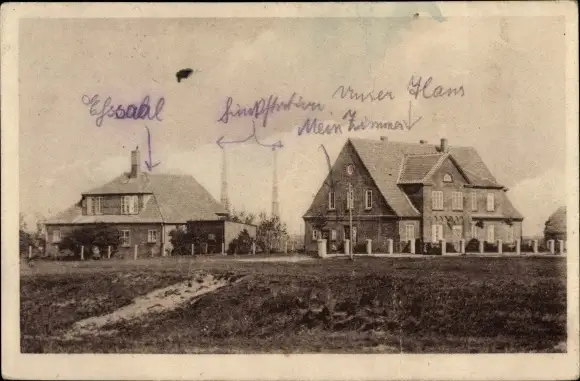 Eßsaal
Funkstation
Unser Haus
Mein Zimmer